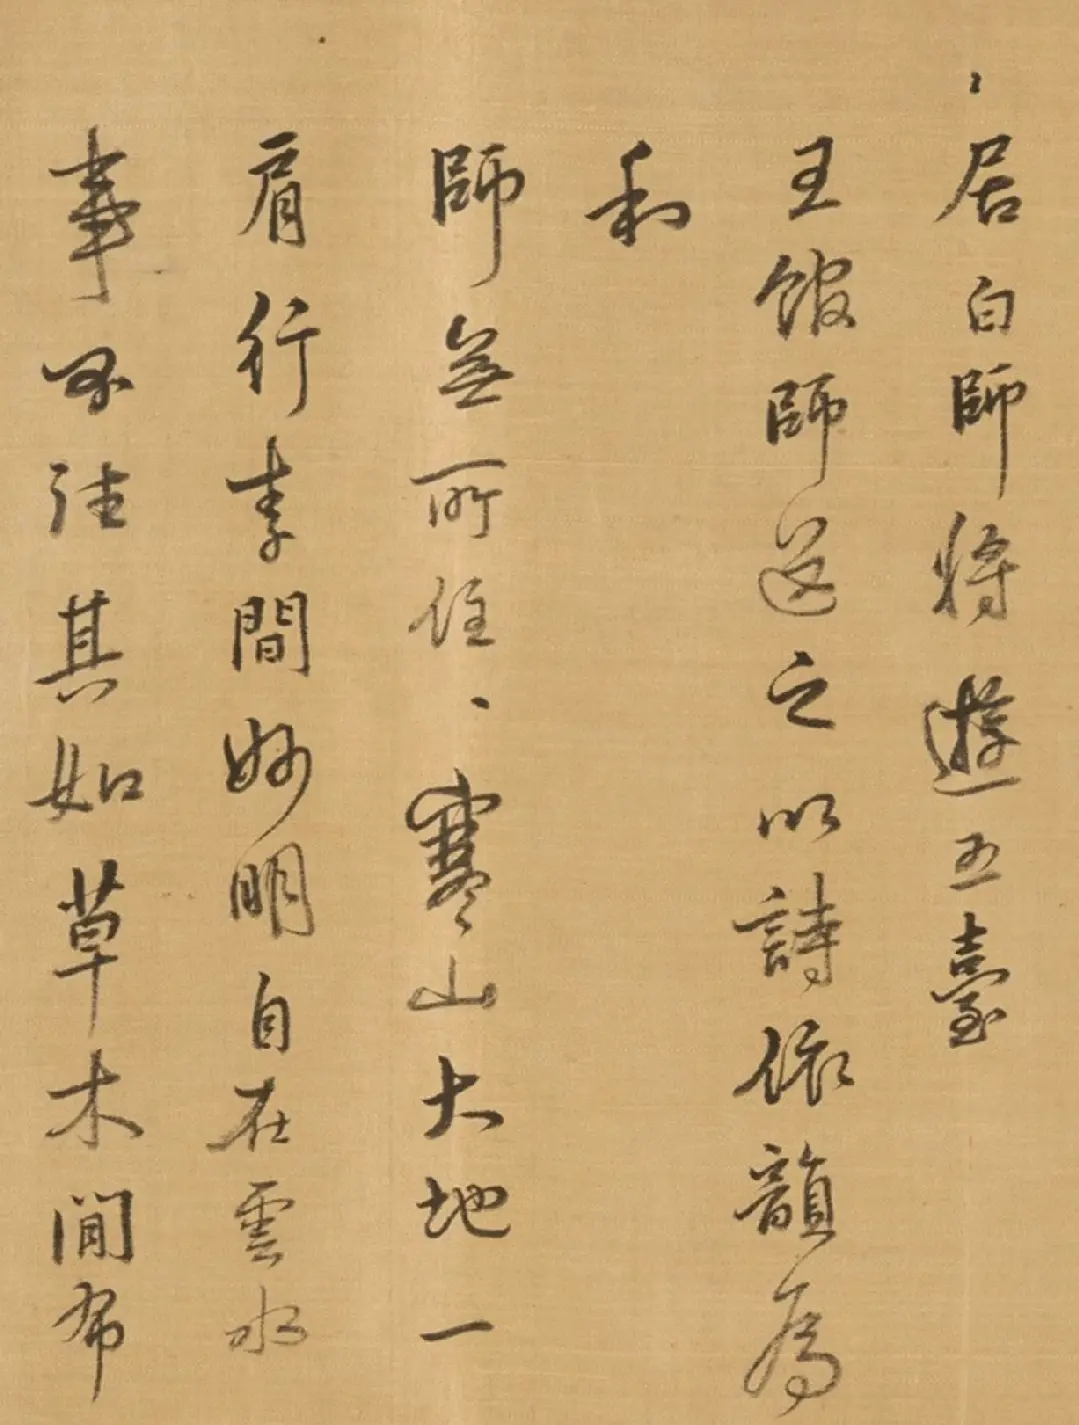 居白師將遊五臺
王館師送之以詩依韻為
和
師無所住寒山大地一
肩行李間妙明自在雲水
事不往其如草木間布